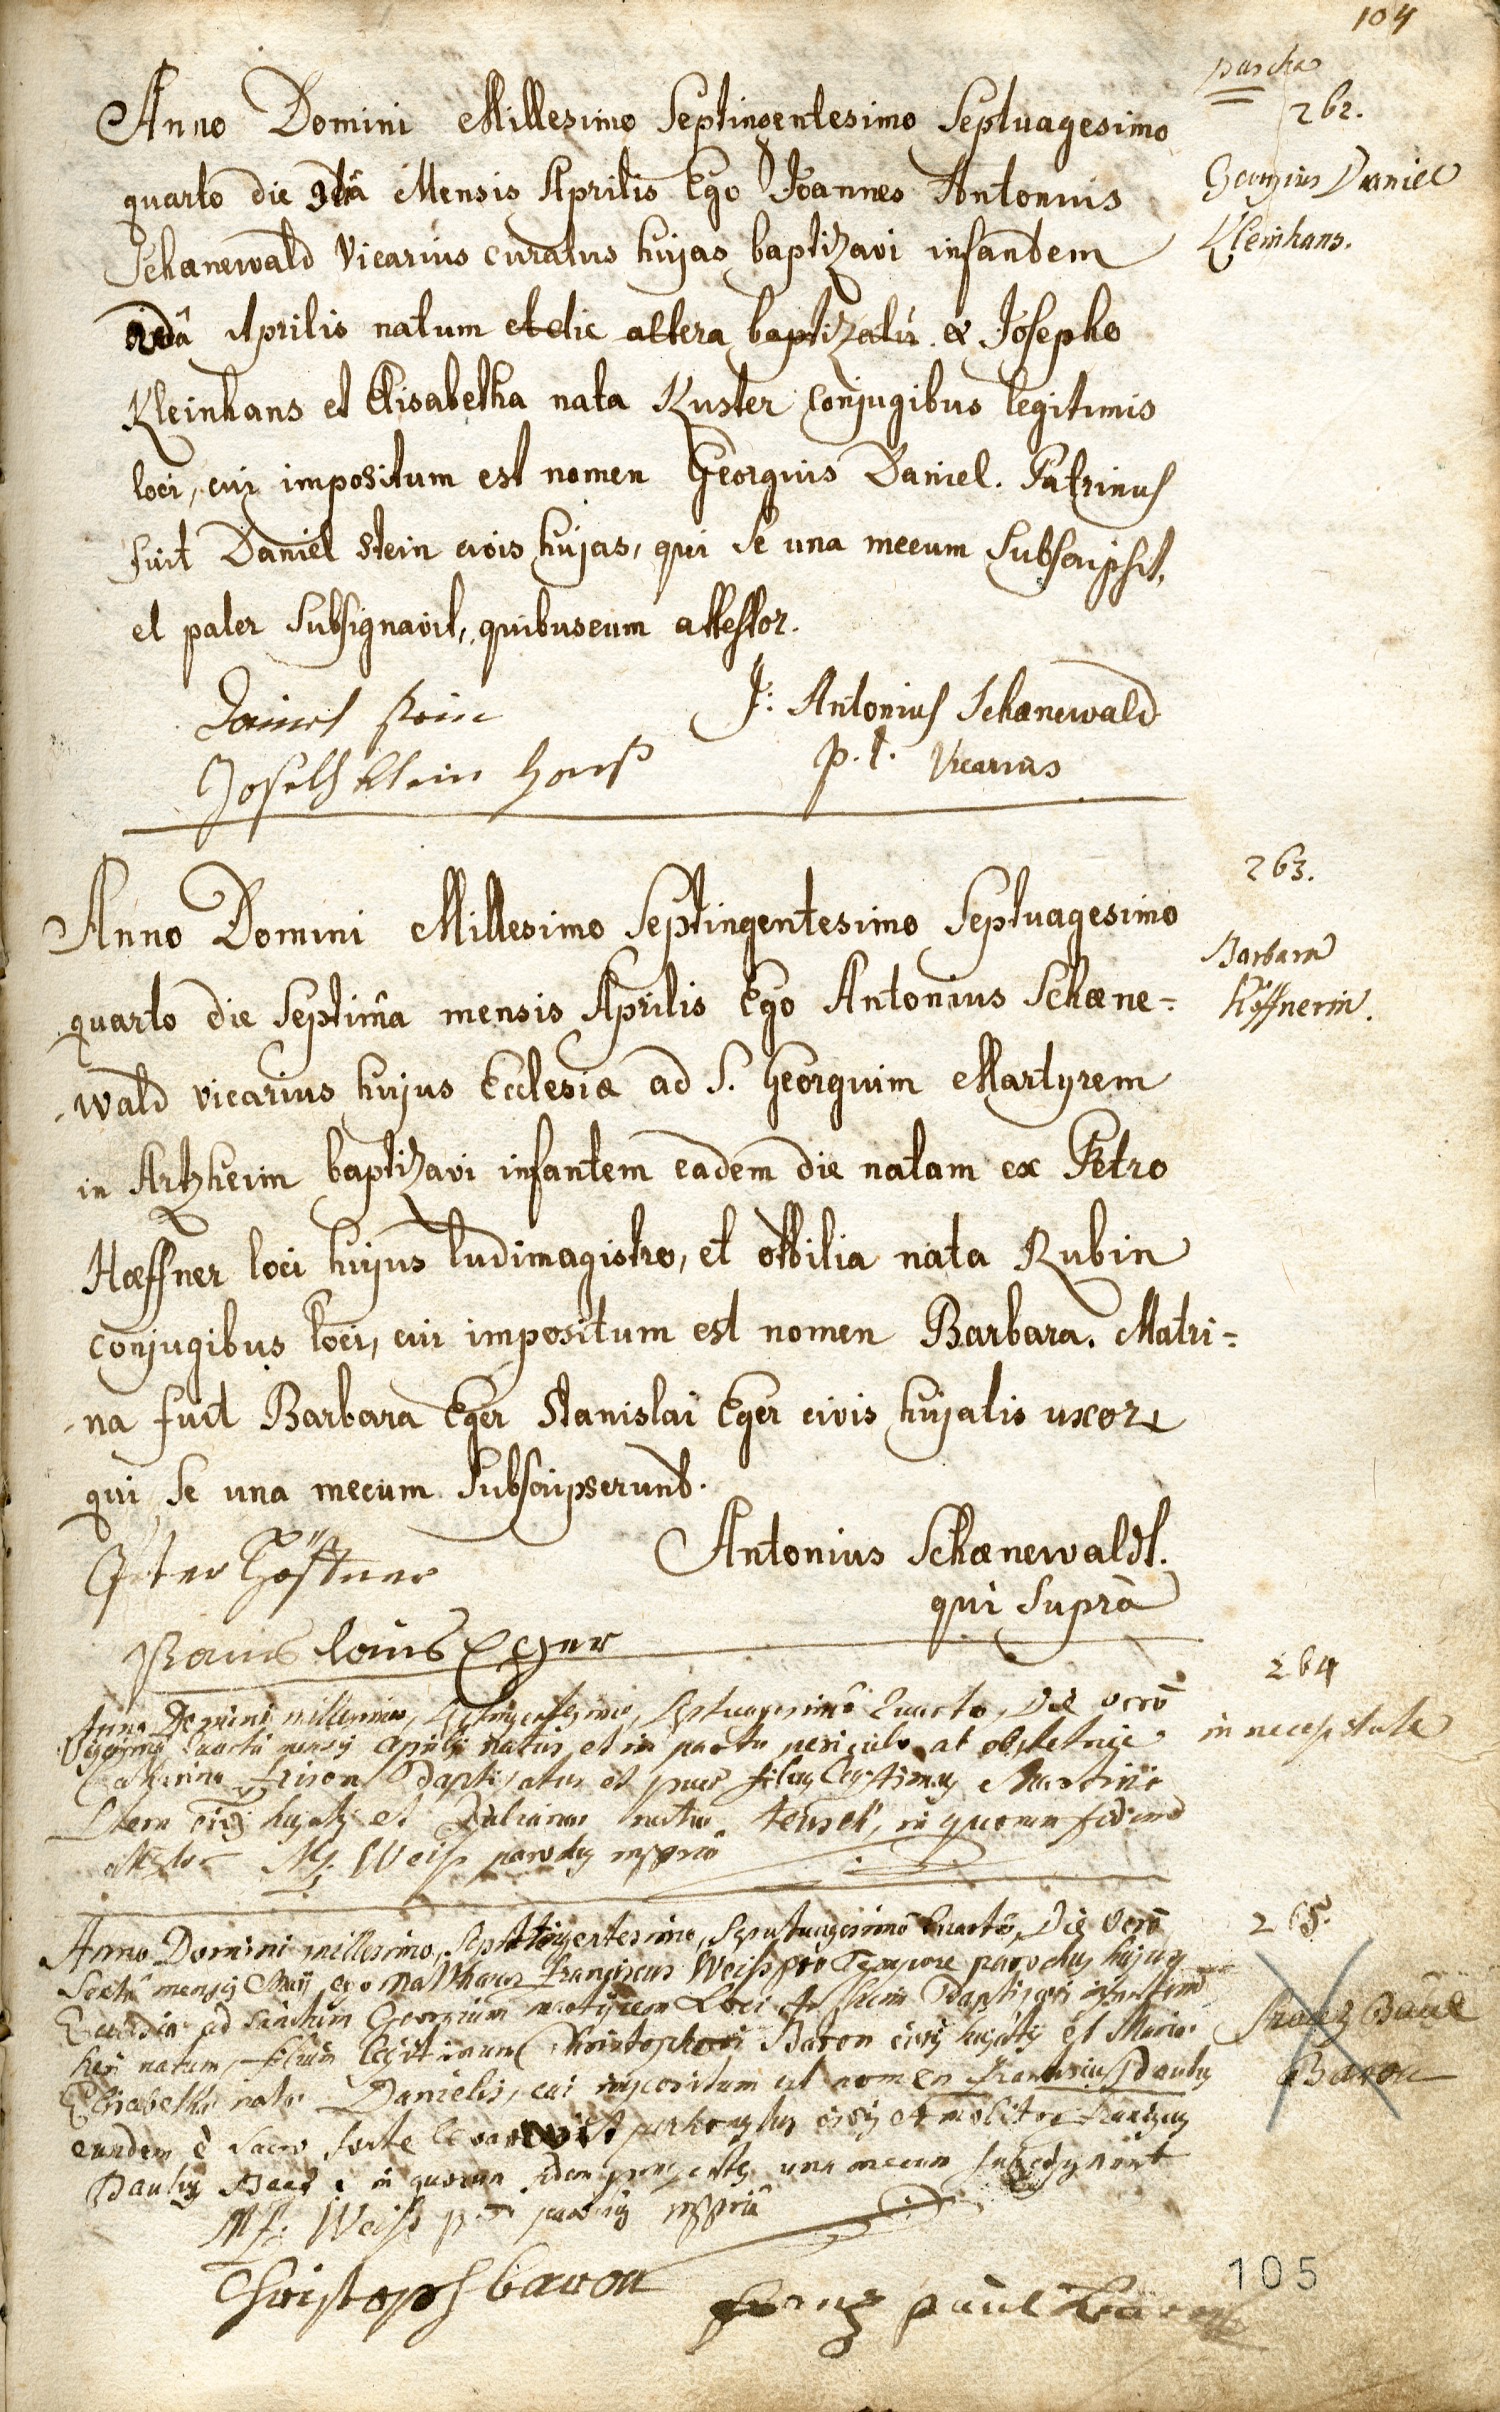 104
pascha
262.
Georgius Daniel
Kleinhans.
Anno Domini Millesimo Septingentesimo Septuagesimo
quarto die 3tiâ Mensis Aprilis Ego Joannes Antonius
Schænewald Vicarius curatus hujas baptizavi infandem
2dâ Aprilis natum et die altera baptizatû ex Josepho
Kleinhans et Elisabetha nata Kuster conjugibus legitimis
loci, cui impositum est nomen Georgius Daniel. Patrinus
fuit Daniel Stein civis hujas, qui se una mecum subscripsit,
et pater subsignavit, quibuscum attestor.
Daniel stein
J: Antonius Schænewald
p. t. Vicarius
Joseph klein Hanß
263.
Barbara
Höffnerin.
Anno Domini Millesimo Septingentesimo Septuagesimo
quarto die Septimâ mensis Aprilis Ego Antonius Schæne=
-wald vicarius hujus Ecclesiæ ad S. Georgium Martyrem
in Artzheim baptizavi infantem eadem die natam ex Petro
Hæffner loci hujus ludimagistro, et ottbilia nata Rubin
conjugibus loci, cui impositum est nomen Barbara. Matri=
-na fuit Barbara Eger Stanislai Eger civis hujatis uxor,
qui se una mecum subscripserund.
Peter Höffner
Antonius Schænewaldt.
qui Suprà
louis Eger
264
in necessitate
Anno Domini millesimo, septingentesimo, septuagesimô quarto, Die verô
Vigesimâ quartâ mensis Aprilis natus, et in partu periculo at obstetrice
Catharina frison Baptisatus est puer filius legitimus Martini
Stern civis hujatis et Julianæ natæ teusch, in quorum fidem
attestor M. F. Weiss parochus mppriâ
265.
Frantz Baul
Baron
Anno Domini millesimo, septingentesimo, septuagesimô quartô, Die verô
Sextâ mensis Maij ego Mathæus Franciscus Weiss pro Tempore parochus hujus
Ecclesiæ ad sanctum Georgium martyrem Loci Baptisavi infantem
heri natum, filium legitimum Christophori Baron civis hujatis et Mariæ
Elisabethæ natæ Danielis, cui impositum est nomen Franciscus Paulus
eundem è sacro fonte levavit civis et molitor Franciscus
Paulus in quorum fidem præsentes una mecum subsignârunt
M F. Weiss p. t. parochus mppriâ
Christoph baron
frantz paul
105